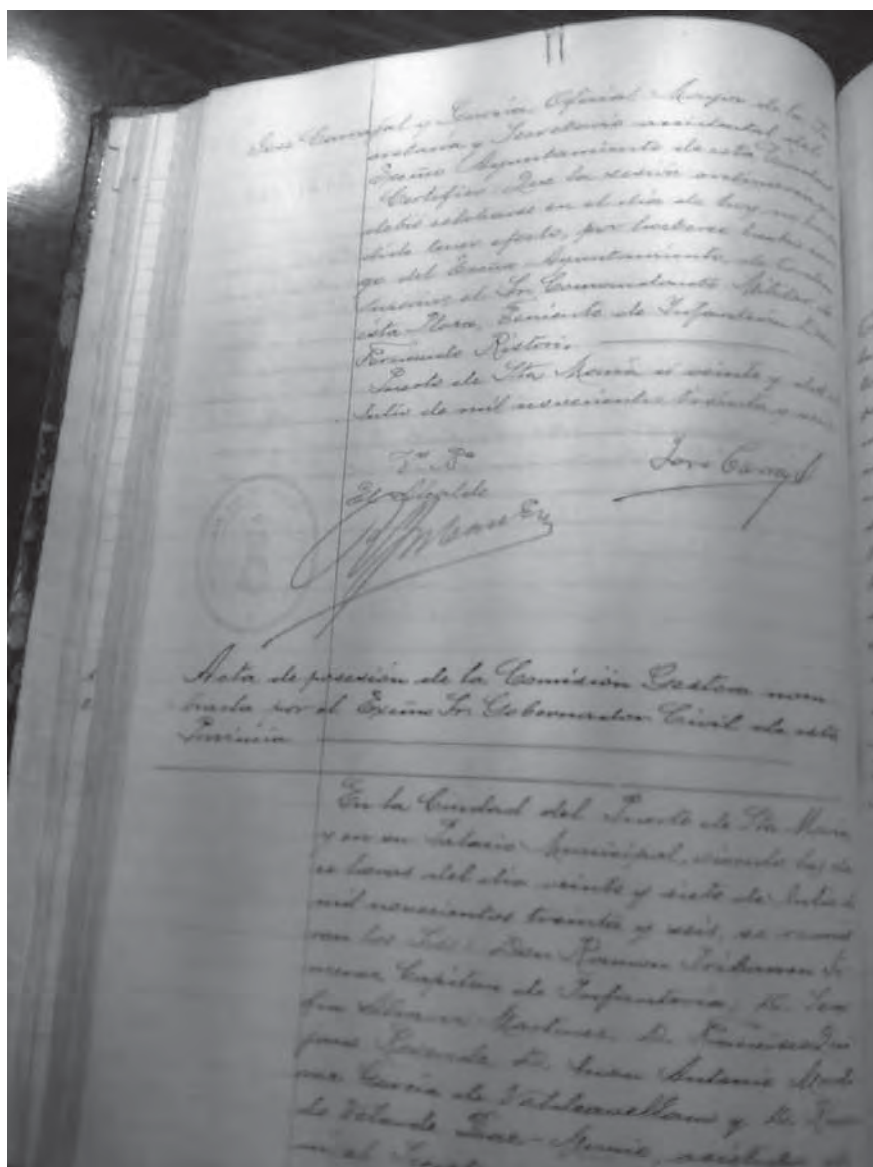 José Carvajal y García, Oficial Mayor de la Se
cretaría y Secretario accidental del
Excmo Ayuntamiento de esta Ciudad
Certifico: Que la sesión ordinaria que
debió celebrarse en el día de hoy, no ha po
dido tener efecto, por haberse hecho car
go del Excmo Ayuntamiento, de
el Sr Comandante Militar de
esta Plaza, Teniente de Infantería Don
Fernando Ristori.
Puerto de Sta María a veinte y dos de
Julio de mil novecientos treinta y seis
Vº Bº
El Alcalde
José Carvajal
Acta de posesión de la Comisión Gestora nom
brada por el Excmo Sr Gobernador Civil de esta
Provincia
En la Ciudad del Puerto de Sta María
y en su Palacio Municipal, siendo las
horas del día veinte y siete de Julio de
mil novecientos treinta y seis, se reunie
ron los Sres: Don Ramon
Capitan de Infantería, D.
Martinez, D. Francisco
D. Juan Antonio
García de Valdeavellano y D.
de Velarde Diaz-